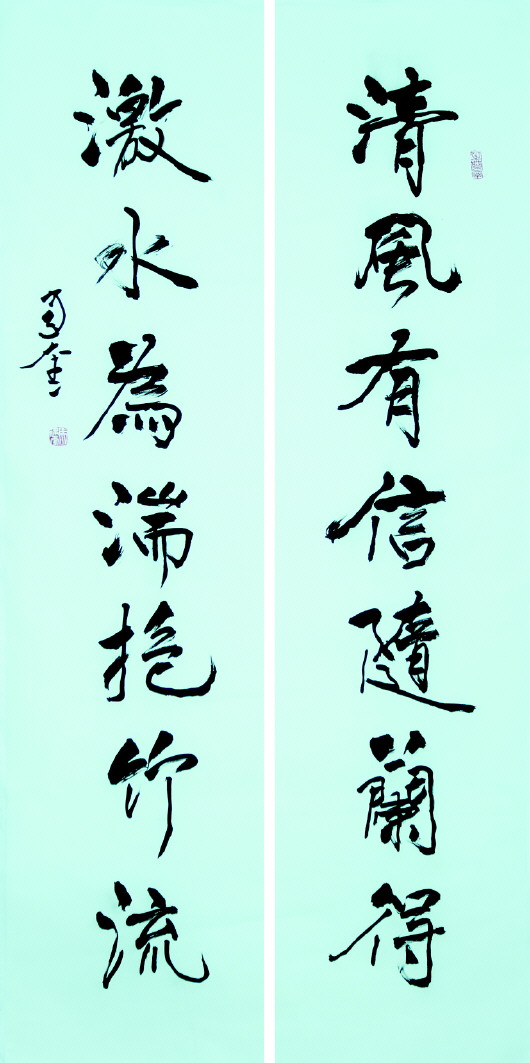 清風有信隨蘭得
激水為湍抱竹流